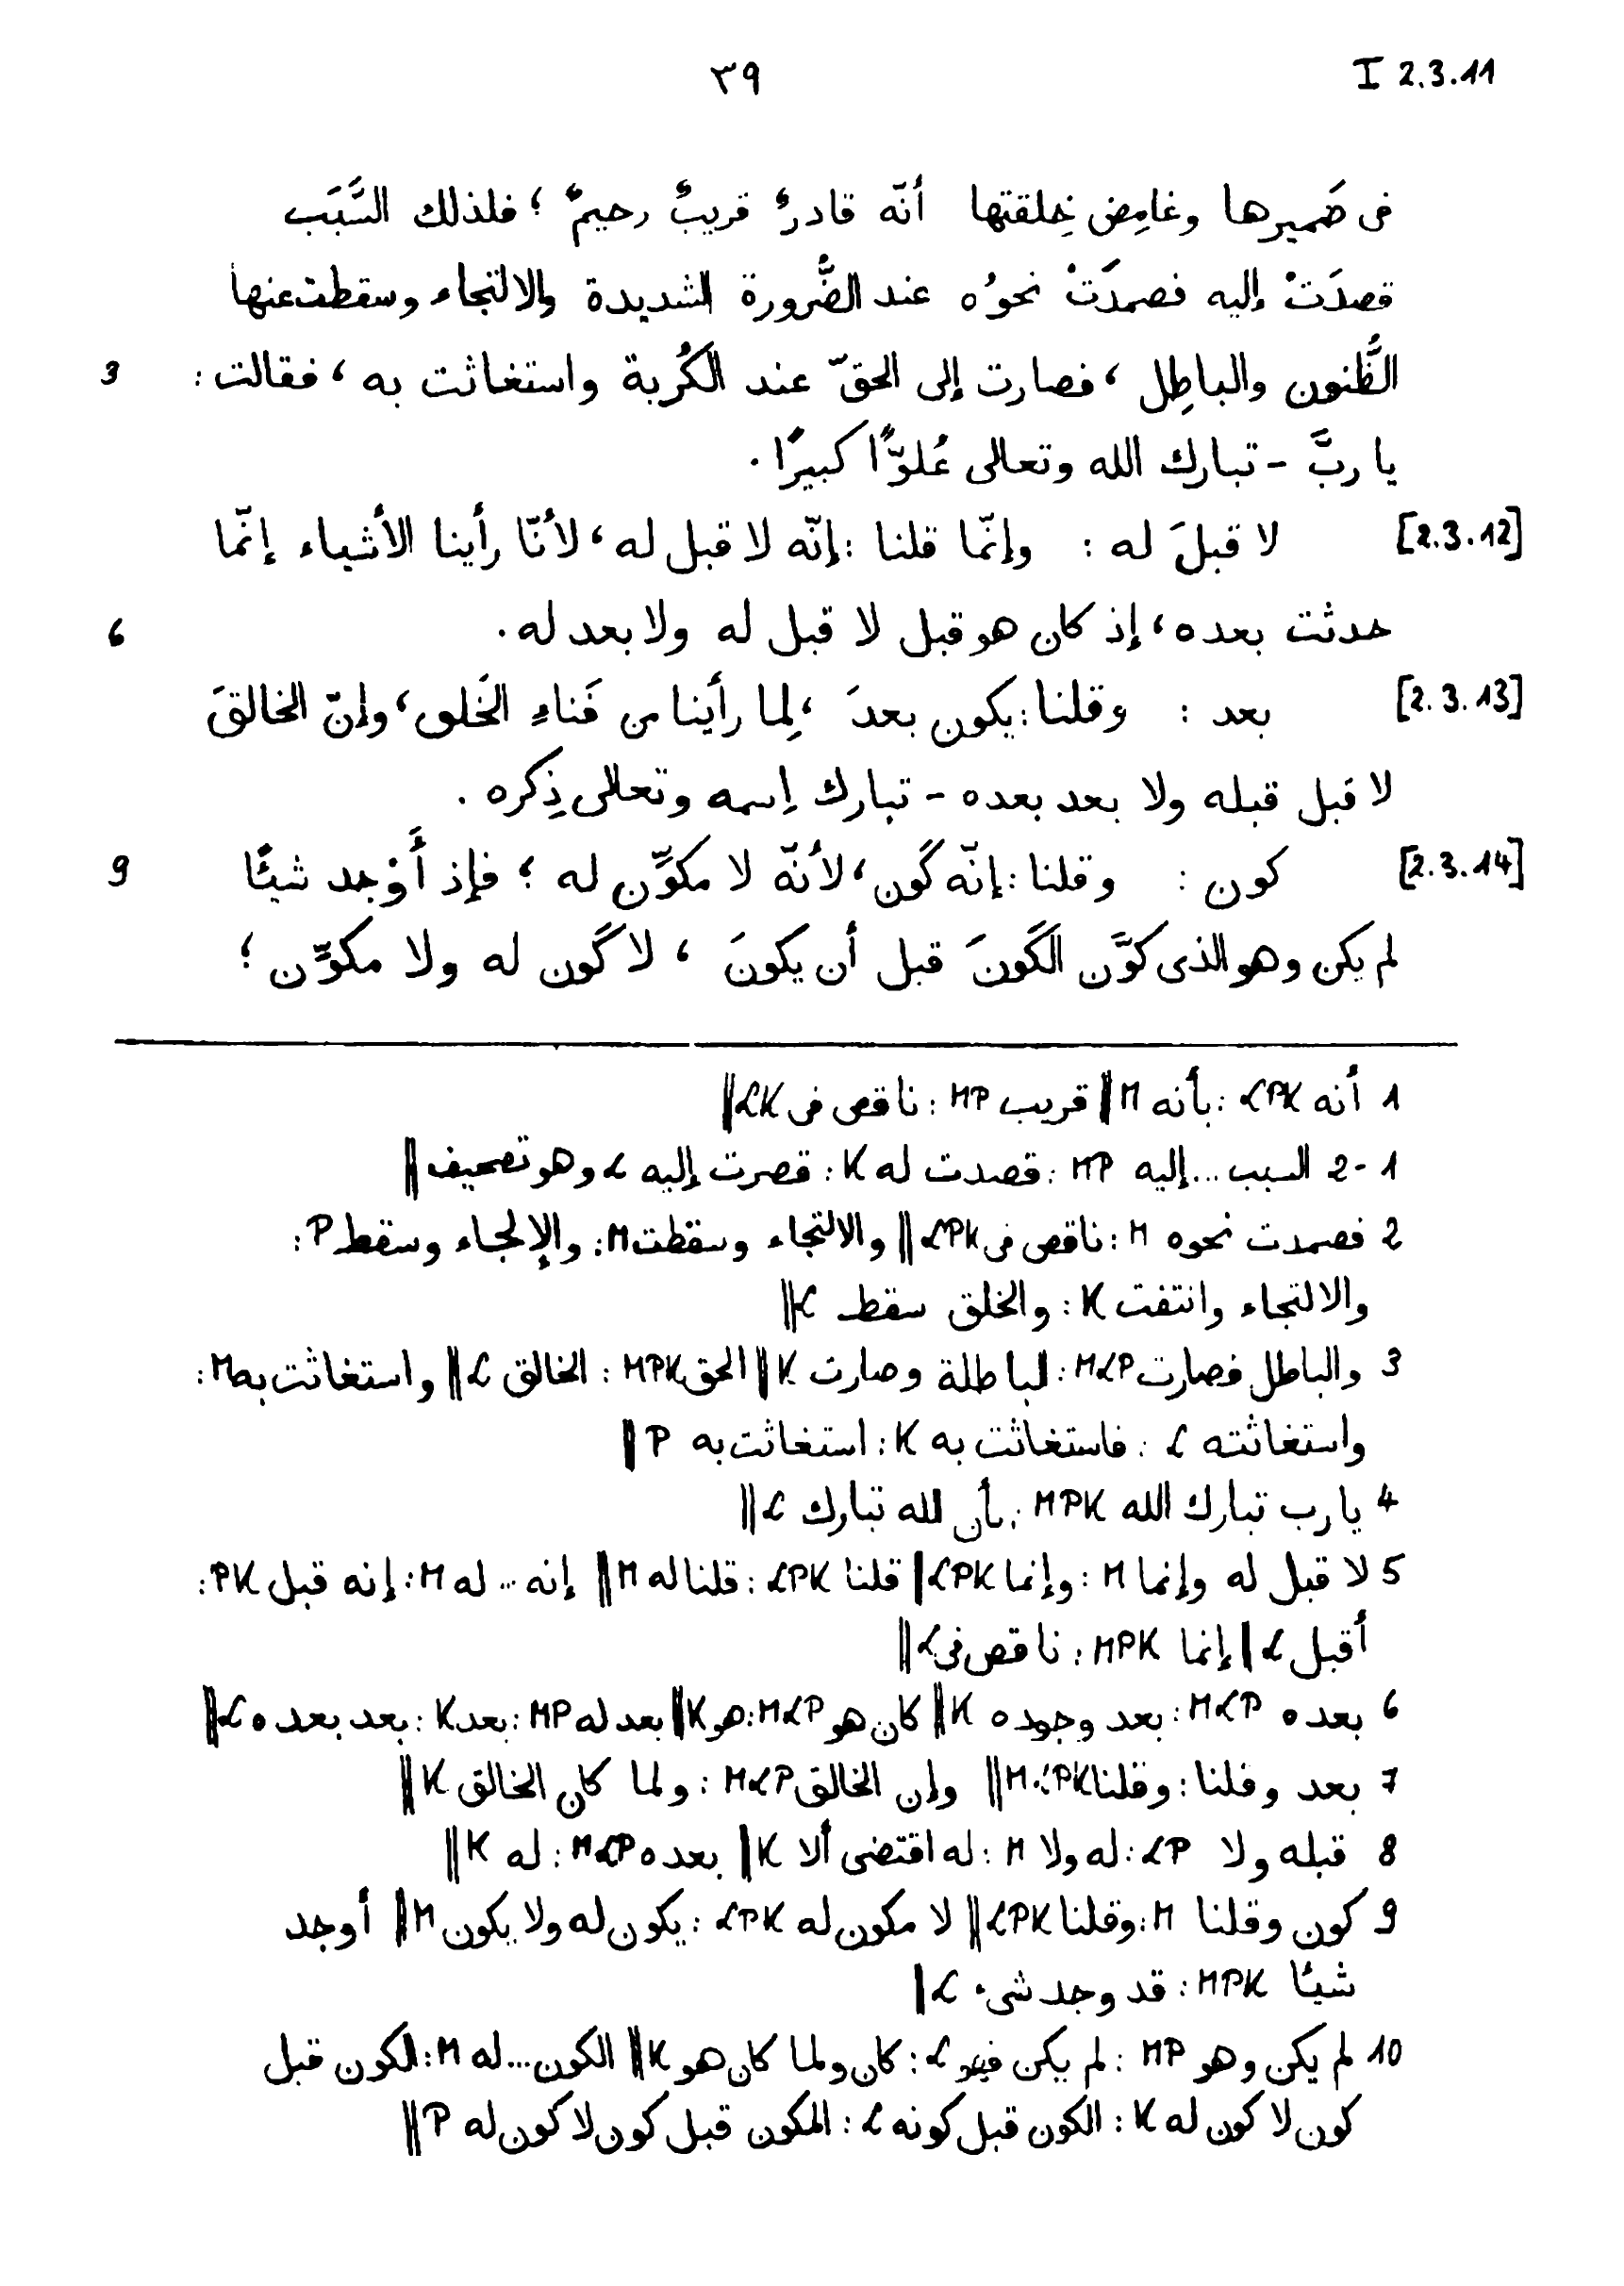 I 2.3.11
٣٩
فى ضَميرها وغامِض خِلقتها أنّه قادرٌ قريبٌ رحيمٌ ؛ فلذلك السَّبَب
قصدَتْ إليه فصمدَتْ نحوُه عند الضَّرورة الشديدة والالتجاء وسقطت عنها
الظُّنون والباطِل ، فصارت إلى الحقّ عند الكُربة واستغاثت به ، فقالت : 3
يا ربَّ - تبارك الله وتعالى عُلوًّا كبيرًا .
[2.3.12] لا قبلَ له : وإنّما قلنا : إنّه لا قبل له ، لأنّا رأينا الأشياء إنّما
حدثت بعده ، إذ كان هو قبل لا قبل له ولا بعد له . 6
[2.3.13] بعد : وقلنا : يكون بعدَ ، لِما رأينا من فَناءِ الخَلق ، وإنّ الخالقَ
لا قبل قبله ولا بعد بعده - تبارك اِسمه وتعالى ذِكره .
[2.3.14] كون : وقلنا : إنّه كَون ، لأنّه لا مكوِّن له ؛ فإذ أَوْجد شيئًا 9
لم يكن وهو الذى كوَّن الكَونَ قبل أن يكونَ ، لا كَون له ولا مكوِّن ؛
1 أنه LPK : بأنه M || قريب MP : ناقص فى LK ||
1-2 السبب ... إليه MP : قصدت له K : قصرت إليه L وهو تصحيف ||
2 فصمدت نحوه M : ناقص فى LPK || والالتجاء وسقطت M : والإلجاء وسقط P :
والالتجاء وانتفت K : والخلق سقط L ||
3 والباطل فصارت MLP : الباطلة وصارت K || الحق MPK : الخالق L || واستغاثت به M :
واستغاثته L : فاستغاثت به K : استغاثت به P ||
4 يا رب تبارك الله MPK : بأن لله تبارك L ||
5 لا قبل له وإنما M : وإنما LPK || قلنا LPK : قلنا له M || إنه ... له M : إنه قبل PK :
أقبل L || إنما MPK : ناقص فى L ||
6 بعده MLP : بعد وجوده K || كان هو MLP : هو K || بعد له MP : بعد K : بعد بعده L ||
7 بعد وقلنا : وقلنا MLPK || وإن الخالق MLP : ولما كان الخالق K ||
8 قبله ولا LP : له ولا M : له اقتضى ألا K || بعده MLP : له K ||
9 كون وقلنا M : وقلنا LPK || لا مكون له LPK : يكون له ولا يكون M || أوجد
شيئًا MPK : قد وجد شىء L ||
10 لم يكن وهو MP : لم يكن فهو L : كان ولما كان هو K || الكون ... له M : الكون قبل
كون لا كون له K : الكون قبل كونه L : المكون قبل كون لا كون له P ||